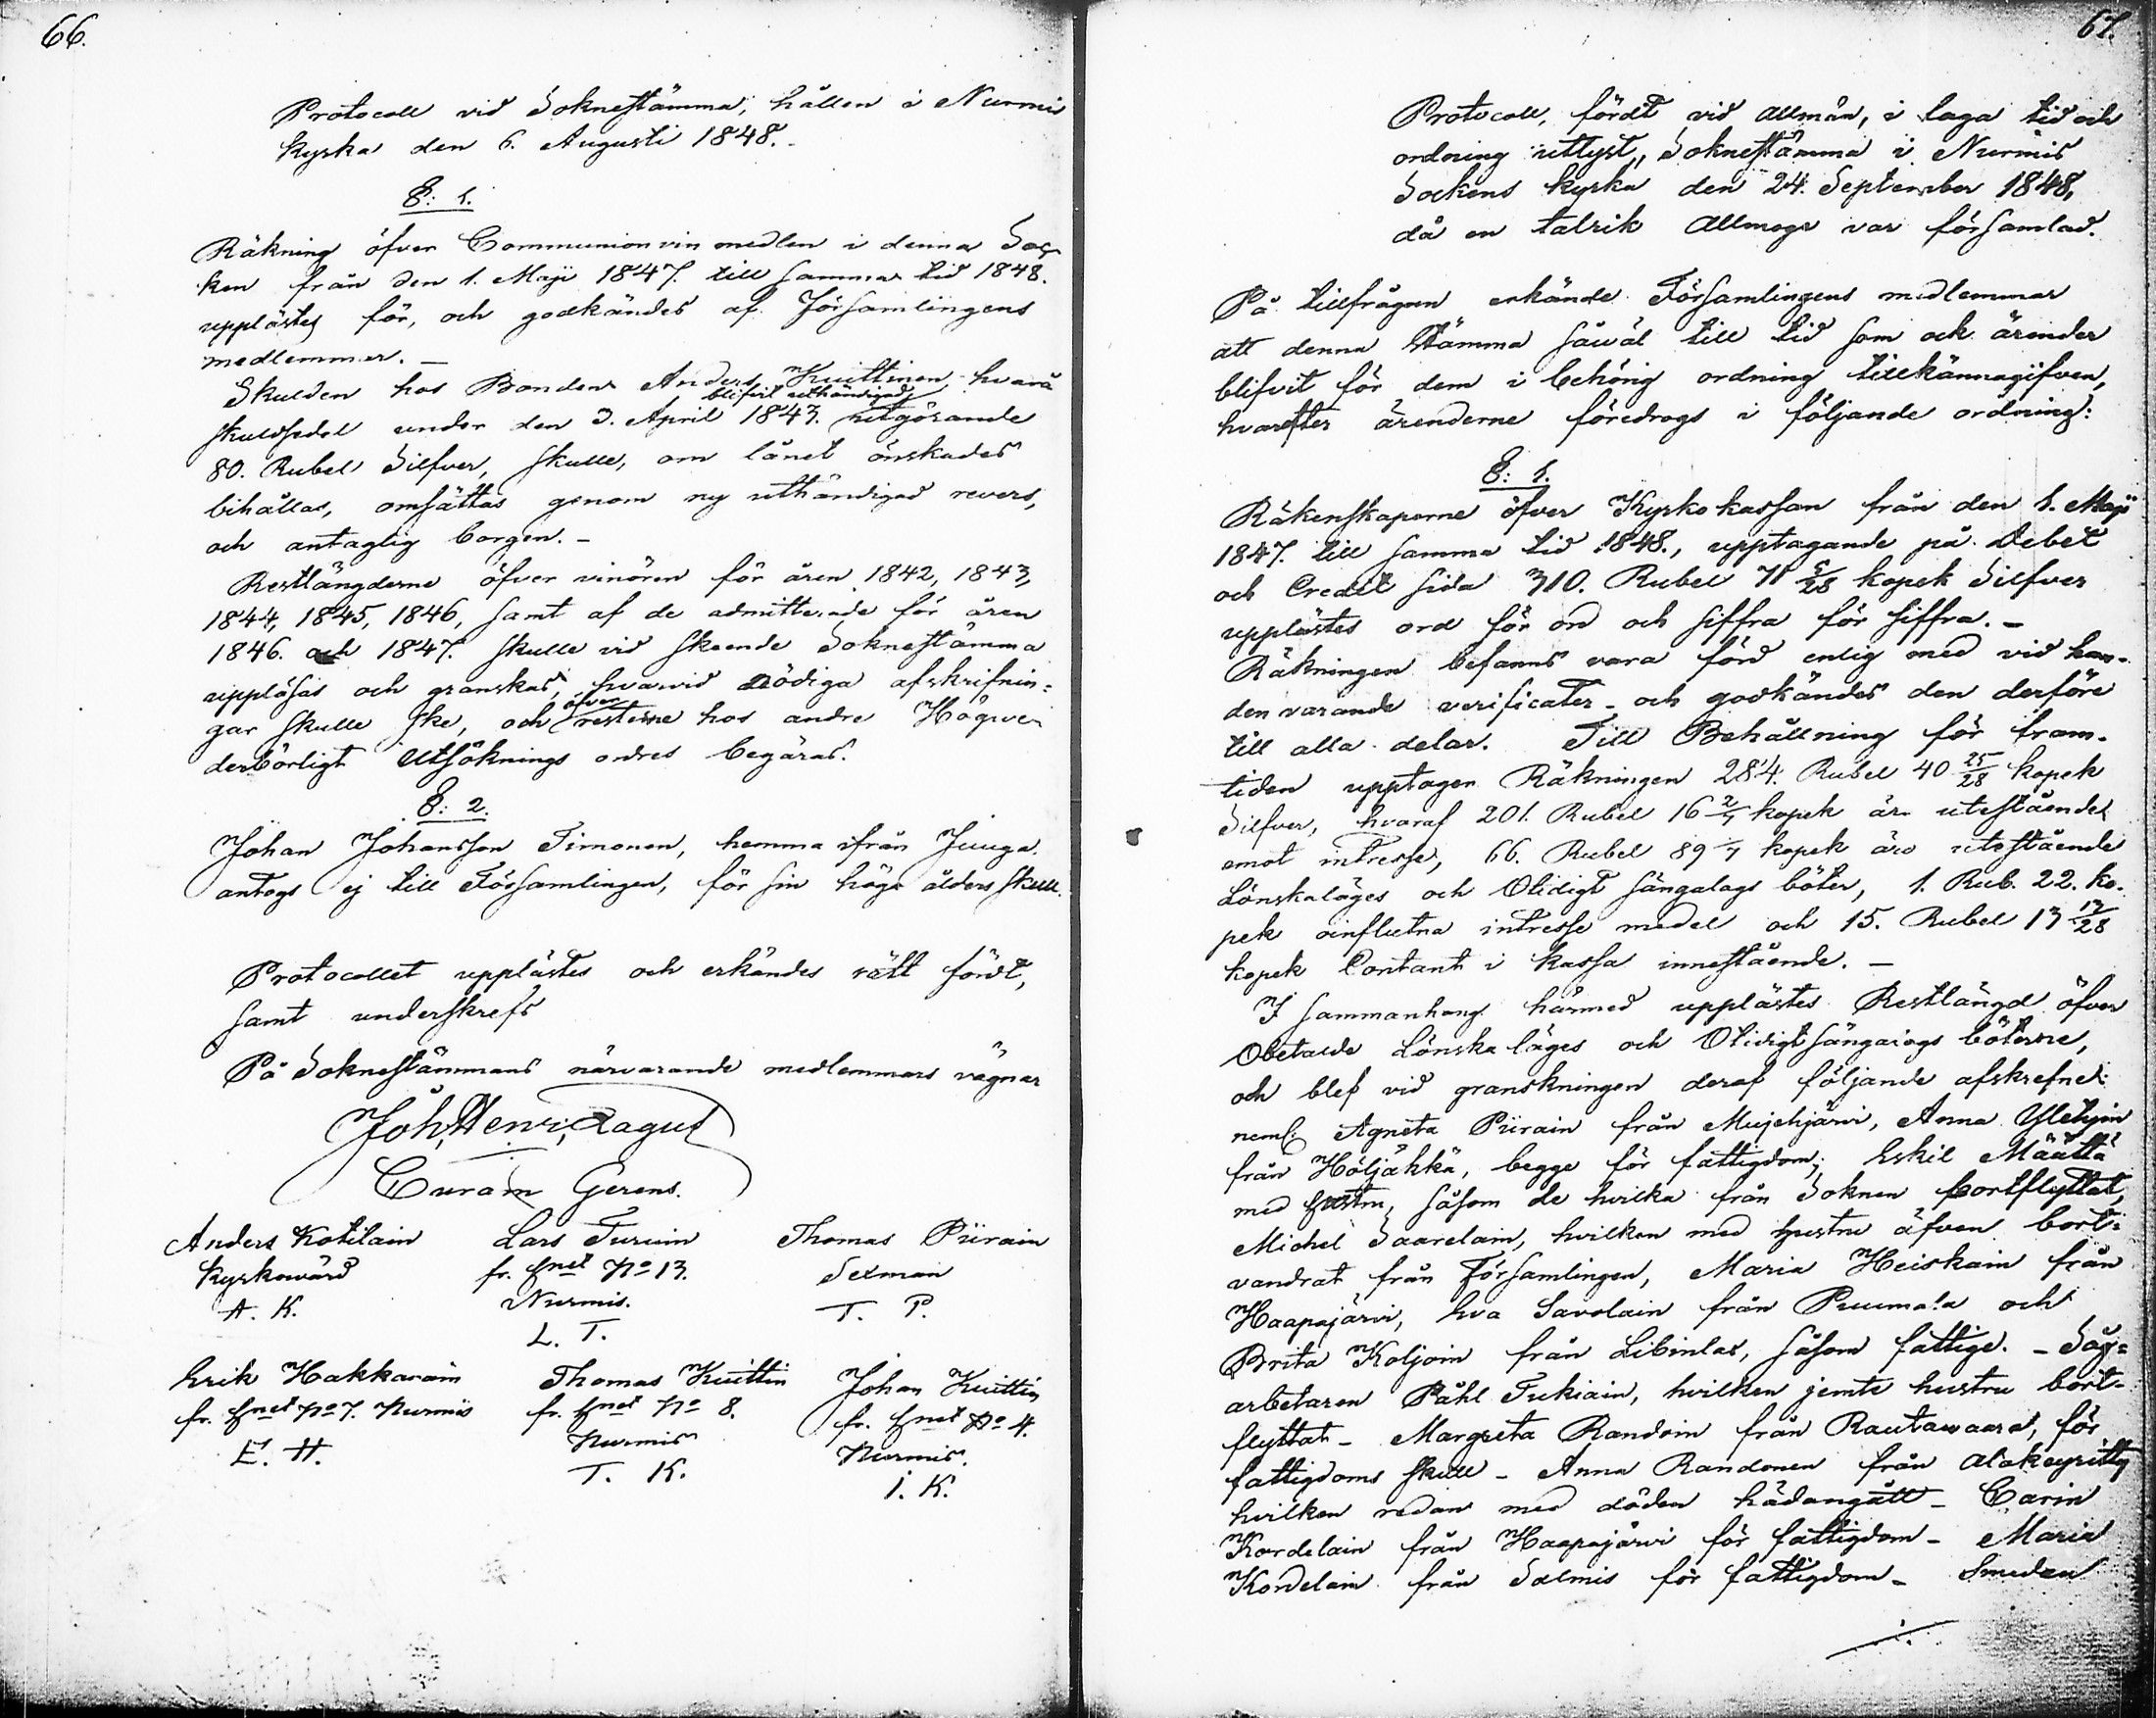 66.
Protocoll vid Soknestämma, hållen i Nurmis
kyrka den 6. Augusti 1848.
§: 1.
Räkning öfver Communionvin medlen i denna Soc-
ken från den 1. Maji 1847. till samma tid 1848.
upplästes för, och godkändes af Församlingens
medlemmer. —
Skulden hos Bonden Anders Kuittinen hvarå
blifvit uthändigad
skuldsedel under den 3. April 1843. utgörande
80. Rubel Silfver, skulle, om lånet önskades
bihållas, omsättas genom ny uthändigad revers,
och antaglig borgen. —
Restlängderne öfver vinören för åren 1842, 1843,
1844, 1845, 1846, samt af de admitterade för åren
1846. och 1847. skulle vid skeende Soknestämma
uppläsas och granskas, hvarvid nödiga afskrifnin-
öfver
gar skulle ske, och resterne hos andre Högve-
derbörligt Utsöknings ordres begäras.
§: 2.
Johan Johansson Timonen, hemma ifrån Juuga
antogs ej till Församlingen, för sin höga ålders skull.
Protocollet upplästes och erkändes rätt fördt,
samt underskrefs
På Soknestämmans närvarande medlemmars vägnar
Joh. Henr. Lagus
Curam Gerens.
Anders Kotilain Lars Turuin Thomas Piirain
Kyrkovärd fr. hnet No 13. Sexman
A. K. Nurmis. T. P.
L. T.
Erik Hakkarain Thomas Kuittin Johan Kuittin
fr. hnet No 7. Nurmis fr. hnet No 8. fr. hnet No 4.
E. H. Nurmis Nurmis.
T. K. J. K.
67.
Protocoll, fördt vid allmän, i laga tid och
ordning uttlyst, Soknestämma i Nurmis
Sockens kyrka den 24. September 1848,
då en talrik Allmoge var församlad.
På tillfrågan erkände Församlingens medlemmar
att denna stämma såväl till tid som och ärender
blifvit för dem i behörig ordning tillkännagifven,
hvarefter ärenderne föredrogs i följande ordning:
§: 1.
Räkenskaperne öfver Kyrkokassan från den 1. Maji
1847. till samma tid 1848., upptagande på Debet
och Credit sida 310. Rubel 71 5/28 kopek Silfver
upplästes ord för ord och siffra för siffra. —
Räkningen befanns vara förd enlig med vid han-
den varande verificater - och godkändes den derföre
till alla delar. Till Behållning för fram-
tiden upptager Räkningen 284. Rubel 40 25/28 kopek
Silfver, hvaraf 201. Rubel 16 2/7 kopek är utestående
emot intresse, 66. Rubel 89 1/7 kopek äro utestående
Lönskaläges och Otidigt sängalags böter, 1. Rub. 22. ko-
pek oinflutna intresse medel och 15. Rubel 13 13/28
kopek Contant i kassa innestående. —
I sammanhang härmed upplästes Restlängd öfver
Obetalde Lönska läges och Otidigt sängalags böterne,
och blef vid granskningen deraf följande afskrefne:
neml. Agneta Piirain från Mujehjärvi, Anna Yletyin
från Höljäkkä, begge för fattigdom; Eskil Määttä
med hustru, såsom de hvilka från Soknen bortflyttat,
Michel Saarelain, hvilken med hustru äfven bort-
vandrat från Församlingen, Maria Heiskain från
Haapajärvi, Eva Savolain från Puumala och
Brita Koljoin från Libinlax, såsom fattige. — Såg-
arbetaren Påhl Tukiain, hvilken jemte hustru bort-
flyttat - Margreta Randoin från Rautawaara, för
fattigdoms skull - Anna Randonen från Alakeyritty
hvilken redan med döden hädangått - Carin
Kordelain från Haapajärvi för fattigdom - Maria
Kordelain från Salmis för fattigdom - Smeden